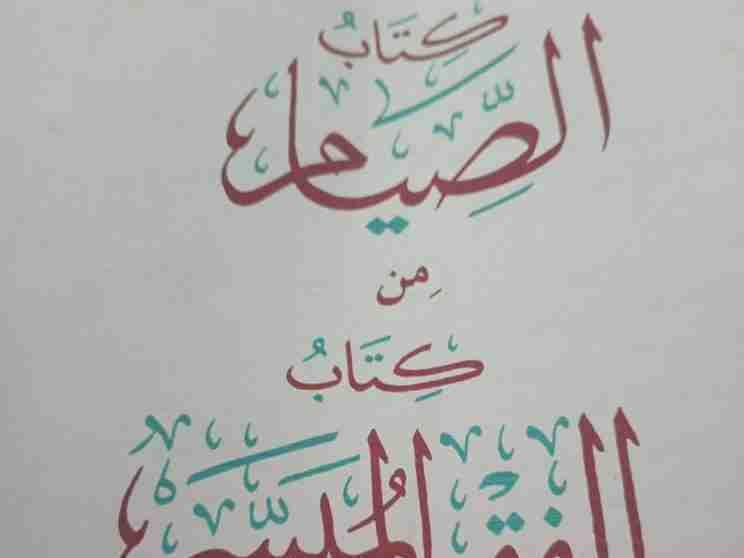 كِتَابُ
الصِّيَام
مِن
كِتَابُ
الفقه المُيسَّر